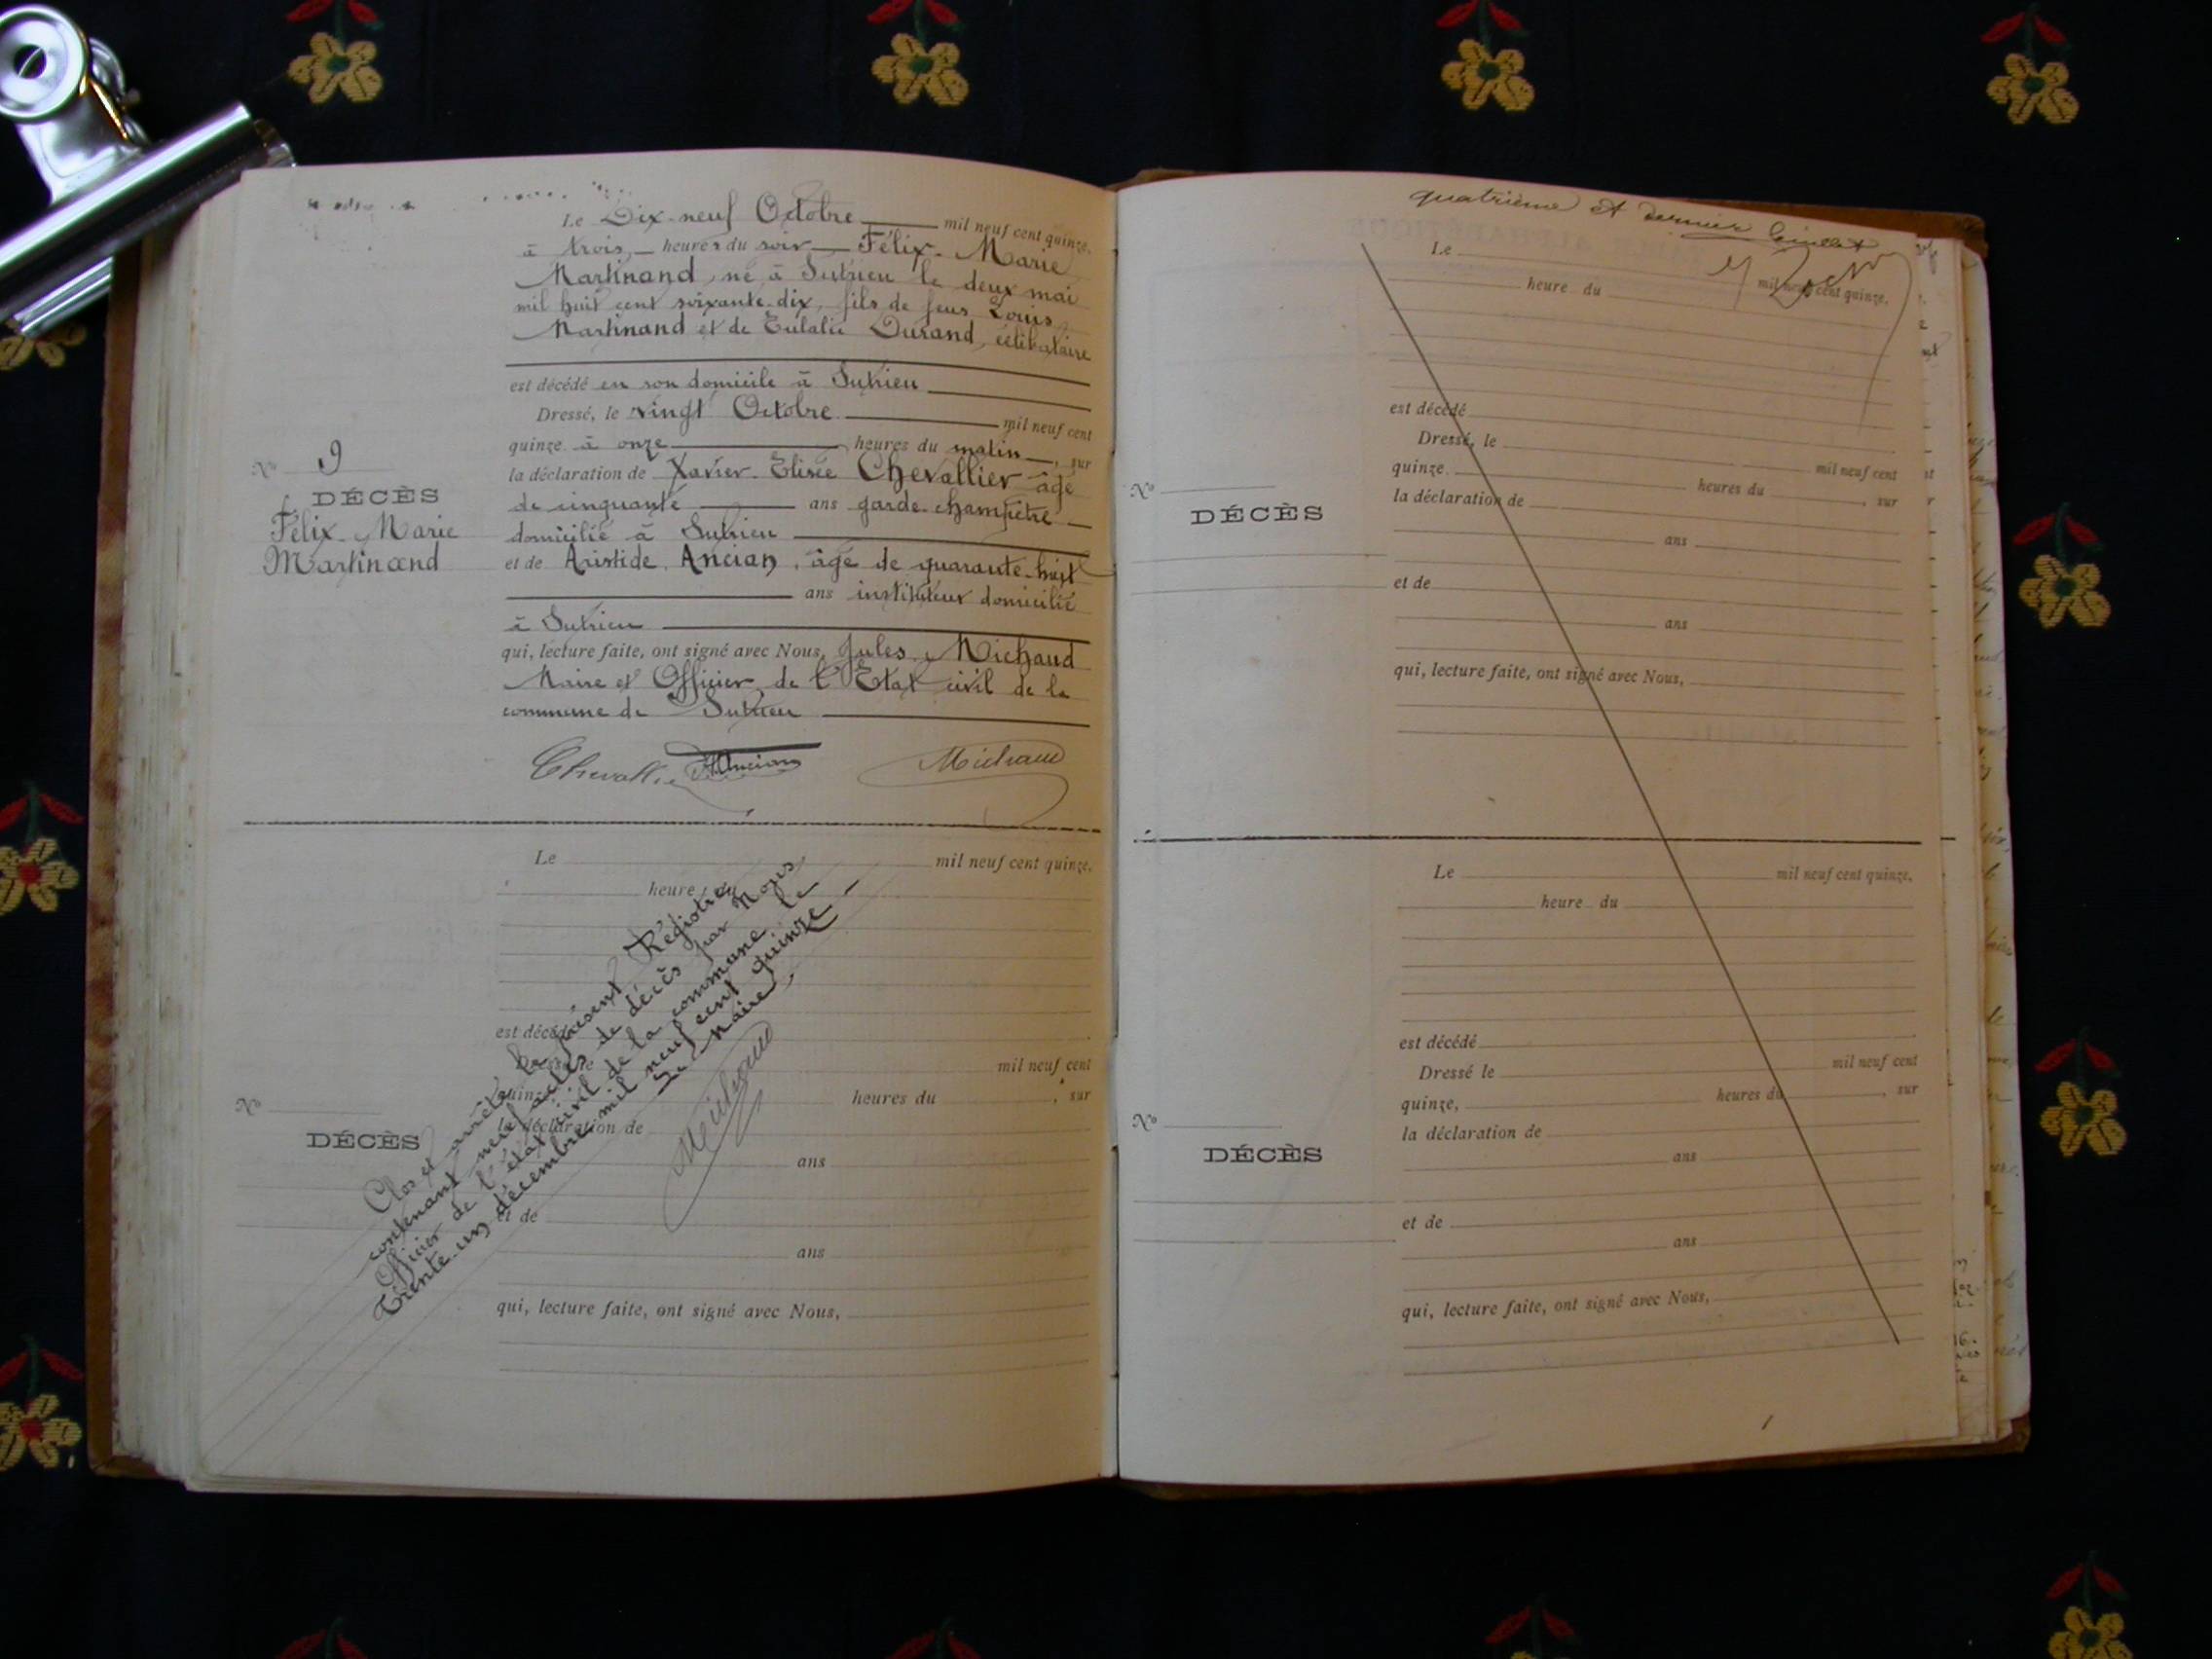 Le Dix-neuf Octobre mil neuf cent quinze,
à trois heures du soir Félix-Marie
Martinand, né à Sutrieu le deux mai
mil huit cent soixante-dix, fils de feus Louis
Martinand et de Eulalie Durand, célibataire
est décédé en son domicile à Sutrieu
Dressé, le vingt Octobre mil neuf cent
quinze à onze heures du matin, sur
la déclaration de Xavier-Elisée Chevallier âgé
de cinquante ans garde-champêtre
domicilié à Sutrieu
et de Aristide Ancian, âgé de quarante-huit
ans instituteur domicilié
à Sutrieu
qui, lecture faite, ont signé avec Nous, Jules Michaud
Maire et Officier de l'Etat civil de la
commune de Sutrieu
Nº 9
DÉCÈS
Félix-Marie
Martinand
Chevallier Ancian Michaud
Le mil neuf cent quinze,
heures du
est décédé
Dressé le mil neuf cent
quinze, heures du , sur
la déclaration de
ans
et de
ans
qui, lecture faite, ont signé avec Nous,
Nº
DÉCÈS
Clos et arrêté le présent Régistre
contenant neuf actes de décès par Nous
Officier de l'état civil de la commune le
Trente-un décembre mil neuf cent quinze
Le Maire,
Michaud
quatrième et dernier feuillet
Le mil neuf cent quinze,
heure du
est décédé
Dressé, le mil neuf cent
quinze heures du , sur
la déclaration de
ans
et de
ans
qui, lecture faite, ont signé avec Nous,
Nº
DÉCÈS
Le mil neuf cent quinze,
heure du
est décédé
Dressé le mil neuf cent
quinze, heures du , sur
la déclaration de
ans
et de
ans
qui, lecture faite, ont signé avec Nous,
Nº
DÉCÈS